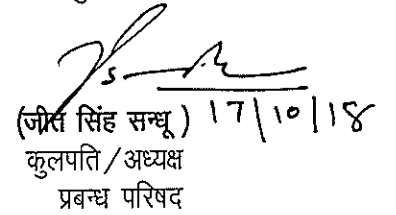 (जीत सिंह सन्धू) 17/10/18
कुलपति/अध्यक्ष
प्रबन्ध परिषद